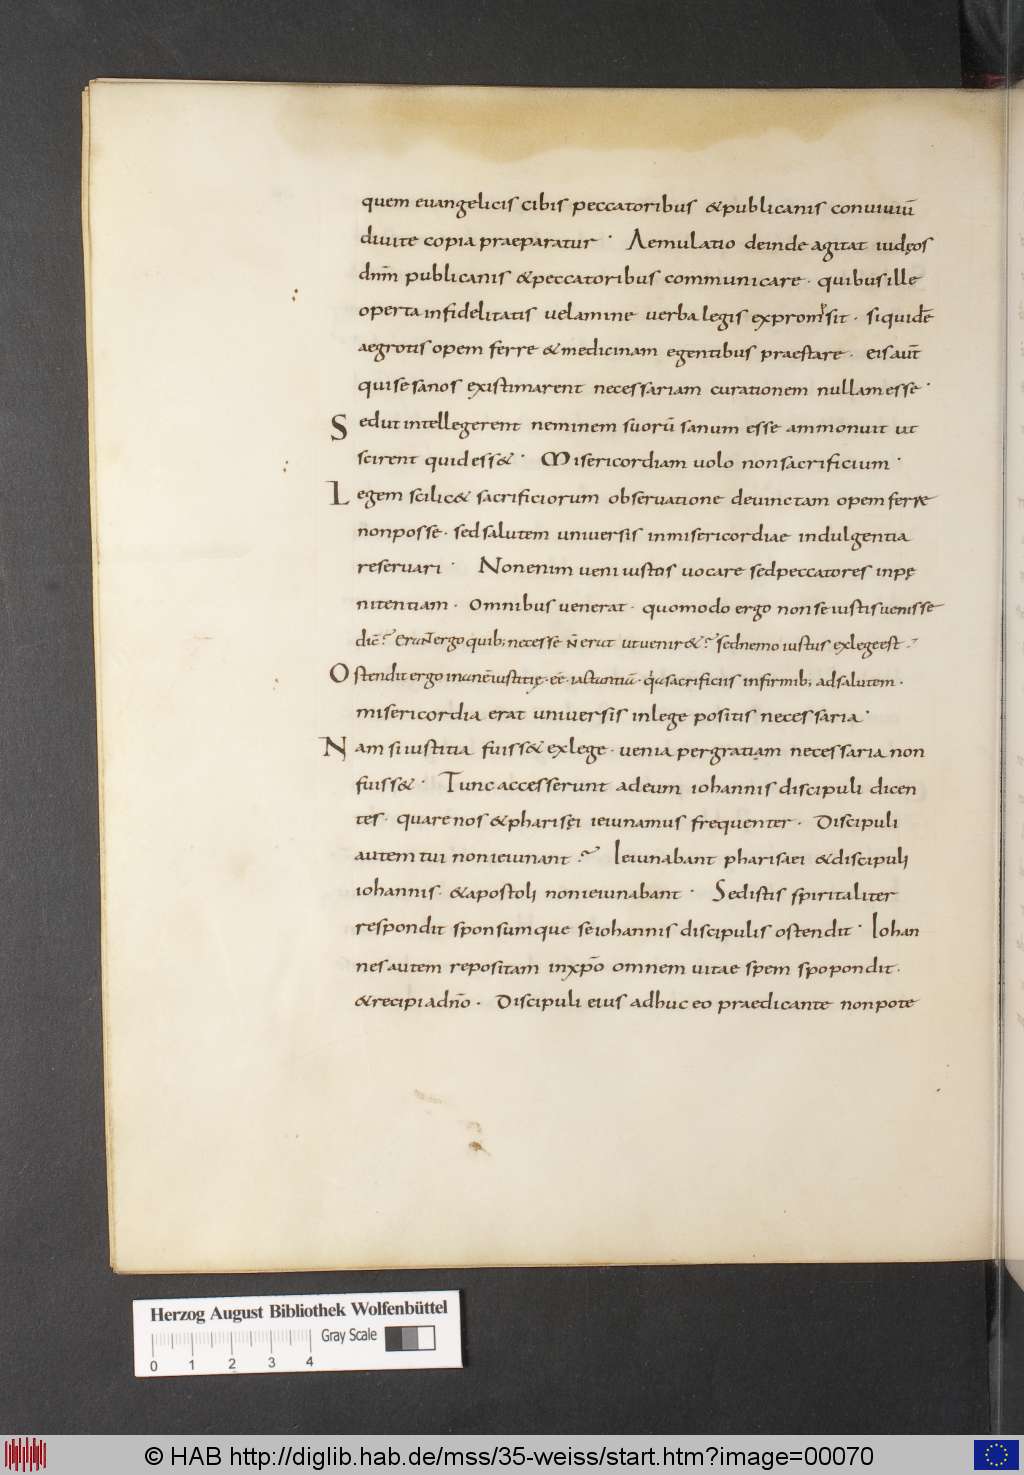 quem euangelicis cibis peccatoribus &publicanis conuiuiū
diuite copia praeparatur · Aemulatio deinde agitat iudęos
dnm̄ publicanis &peccatoribus communicare · quibus ille
operta infidelitatis uelamine uerba legis expromsit · siquidē
aegrotis opem ferre &medicinam egentibus praestare · eis aut̄
qui se sanos existimarent necessariam curationem nullam esse ·
Sed ut intellegerent neminem suorū sanum esse ammonuit ut
scirent quid ess& · Misericordiam uolo non sacrificium ·
Legem scilic& sacrificiorum obseruatione deuinctam opem ferre
non posse · sed salutem uniuersis in misericordiae indulgentia
reseruari · Non enim ueni iustos uocare sed peccatores in pę
nitentiam · Omnibus uenerat · quomodo ergo non se iustis uenisse
dic̄? Erant ergo quib; necesse n̄ erat ut uenir&? sed nemo iustus ex lege est ·
Ostendit ergo inanē iustitię · eē · iactantiā · quia sacrificiis infirmib; ad salutem ·
misericordia erat uniuersis in lege positis necessaria ·
Nam si iustitia fuiss& ex lege · uenia per gratiam necessaria non
fuiss& · Tunc accesserunt ad eum iohannis discipuli dicen
tes · quare nos &pharisęi ieiunamus frequenter · Discipuli
autem tui non ieiunant? Ieiunabant pharisaei &discipuli
iohannis · &apostoli non ieiunabant · Sed istis spiritaliter
respondit sponsumque se iohannis discipulis ostendit · Iohan
nes autem repositam in xpō omnem uitae spem spopondit ·
&recipi a dnō · Discipuli eius adhuc eo praedicante non pote
Herzog August Bibliothek Wolfenbüttel
Gray Scale
0 1 2 3 4
© HAB http://diglib.hab.de/mss/35-weiss/start.htm?image=00070